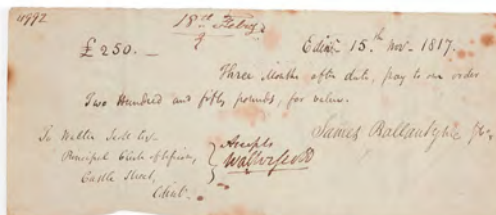 4992
18th Feby.
£250.— Edinr 15.th Nov. 1817.
Three Months after date, pay to our order
Two Hundred and fifty pounds, for value.
James Ballantyne & Co.
To Walter Scott Esq.
Principal Clerk of Session,
Castle Street,
Edinr.
Accepts
Walter Scott